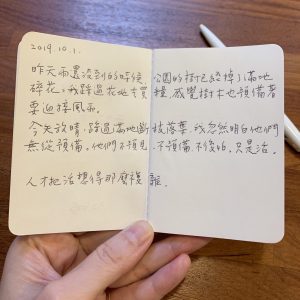 2019.10.1.
昨天雨還沒到的時候，公園的樹已經掉了滿地
碎花。我踩過花地去買糧，感覺樹木也預備著
要迎接風雨。
今天放晴，踩過滿地斷枝落葉，我忽然明白他們
無從預備。他們不預見、不預備、不後怕，只是活。
人才把活想得那麼複雜。